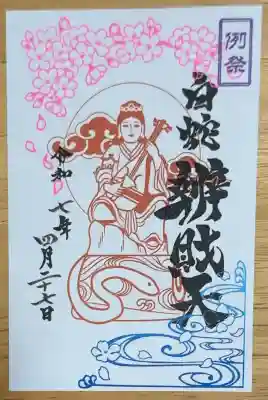 例祭
白蛇辨財天
令和七年
四月二十七日